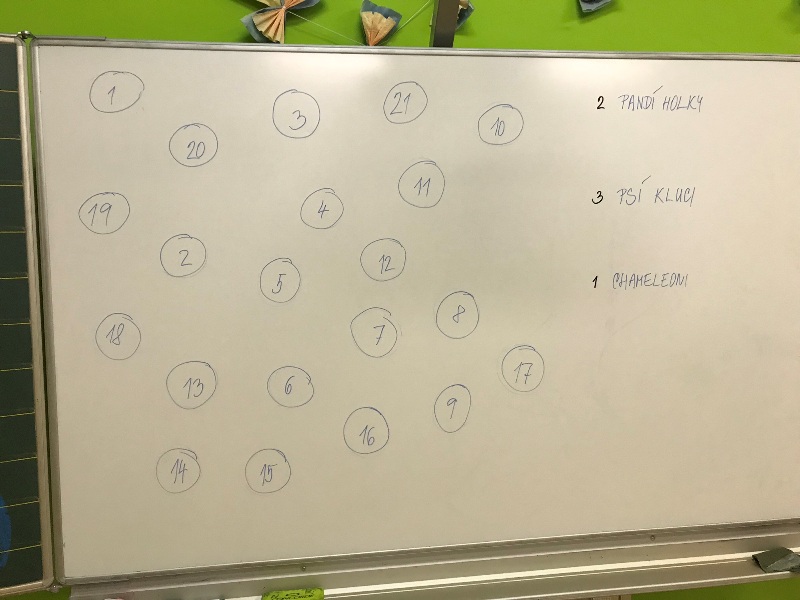 1
3
21
10
20
11
19
4
2
5
12
18
7
8
13
6
17
16
9
14
15
2 PANDÍ HOLKY
3 PSÍ KLUCI
1 CHAMELEONI